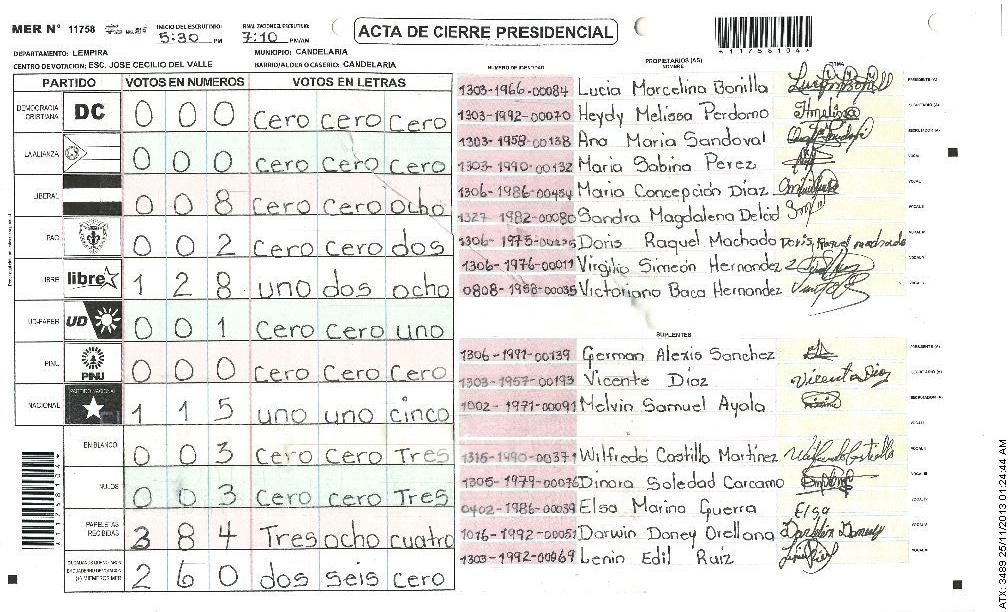 MER Nº 11758 INICIO DEL ESCRUTINIO: 5:30 PM FINALIZACION DEL ESCRUTINIO: 7:10 PM/AM
ACTA DE CIERRE PRESIDENCIAL
11758104
DEPARTAMENTO: LEMPIRA MUNICIPIO: CANDELARIA
CENTRO DE VOTACION: ESC. JOSE CECILIO DEL VALLE BARRIO/ALDEA O CASERIO: CANDELARIA
PARTIDO VOTOS EN NUMEROS VOTOS EN LETRAS
DEMOCRACIA CRISTIANA DC 0 0 0 cero cero cero
LA ALIANZA 0 0 0 cero cero cero
LIBERAL 0 0 8 cero cero ocho
PAC 0 0 2 cero cero dos
LIBRE libre 1 2 8 uno dos ocho
UD-FAPER UD 0 0 1 cero cero uno
PINU PINU 0 0 0 cero cero cero
NACIONAL 1 1 5 uno uno cinco
EN BLANCO 0 0 3 cero cero Tres
NULOS 0 0 3 cero cero Tres
PAPELETAS RECIBIDAS 3 8 4 Tres ocho cuatro
2 6 0 dos seis cero
NUMERO DE IDENTIDAD PROPIETARIOS (AS) NOMBRE FIRMA
1303-1966-00084 Lucia Marcelina Bonilla PRESIDENTE (A)
1303-1992-00070 Heydy Melissa Perdomo SECRETARIO (A)
1303-1958-00138 Ana Maria Sandoval ESCRUTADOR (A)
1303-1990-00132 Maria Sabina Perez VOCAL I
1306-1986-00434 Maria Concepción Díaz
1327-1982-00080 Sandra Magdalena Delcid
Doris Raquel Machado Doris Raquel machado
1306-1976-00011 Virgilio Simeón Hernandez
0808-1958-00035 Victoriano Baca Hernandez
SUPLENTES
1306-1991-00139 German Alexis Sanchez PRESIDENTE (A)
1303-1957-00193 Vicente Díaz Vicente Díaz SECRETARIO (A)
1002-1971-00091 Melvin Samuel Ayala ESCRUTADOR (A)
1315-1990-00371 Wilfredo Castillo Martínez
1305-1979-00076 Dinora Soledad Carcamo
0402-1986-00039 Elsa Marina Guerra Elsa
1016-1992-00051 Darwin Doney Orellana
1303-1992-00069 Lenin Edil Ruiz
11758104
ATX: 3489 25/11/2013 01:24:44 AM